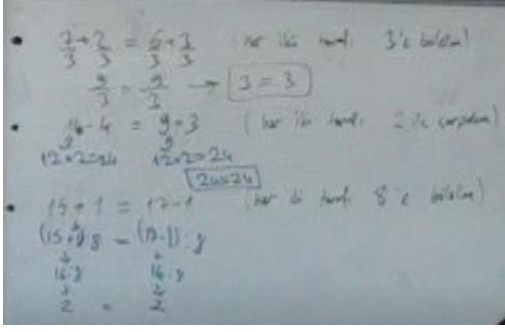 7/3 + 2/3 = 6/3 + 3/3 (her iki tarafı 3'e bölelim)
9/3 = 9/3 → 3 = 3
16-4 = 9+3 (her iki tarafı 2 ile çarpalım)
12·2=24 12·2=24
24=24
15+1 = 17-1 (her iki tarafı 8'e bölelim)
(15+1):8 = (17-1):8
16:8 16:8
2 = 2